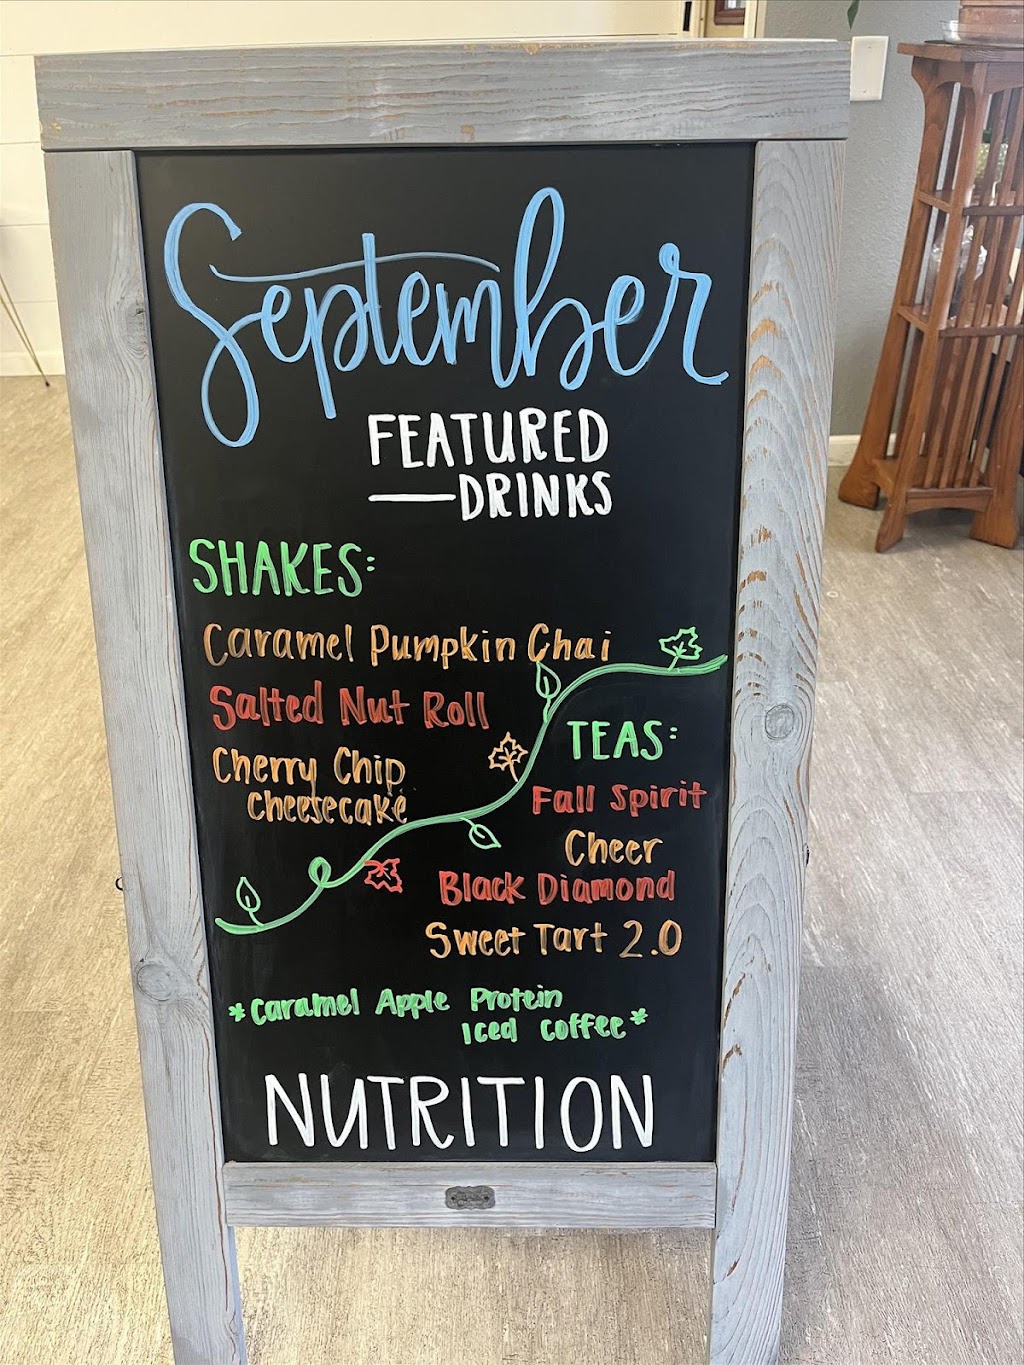 September
FEATURED
DRINKS
SHAKES:
Caramel Pumpkin Chai
Salted Nut Roll
Cherry Chip
Cheesecake
TEAS:
Fall Spirit
Cheer
Black Diamond
Sweet Tart 2.0
*Caramel Apple Protein
Iced Coffee*
NUTRITION